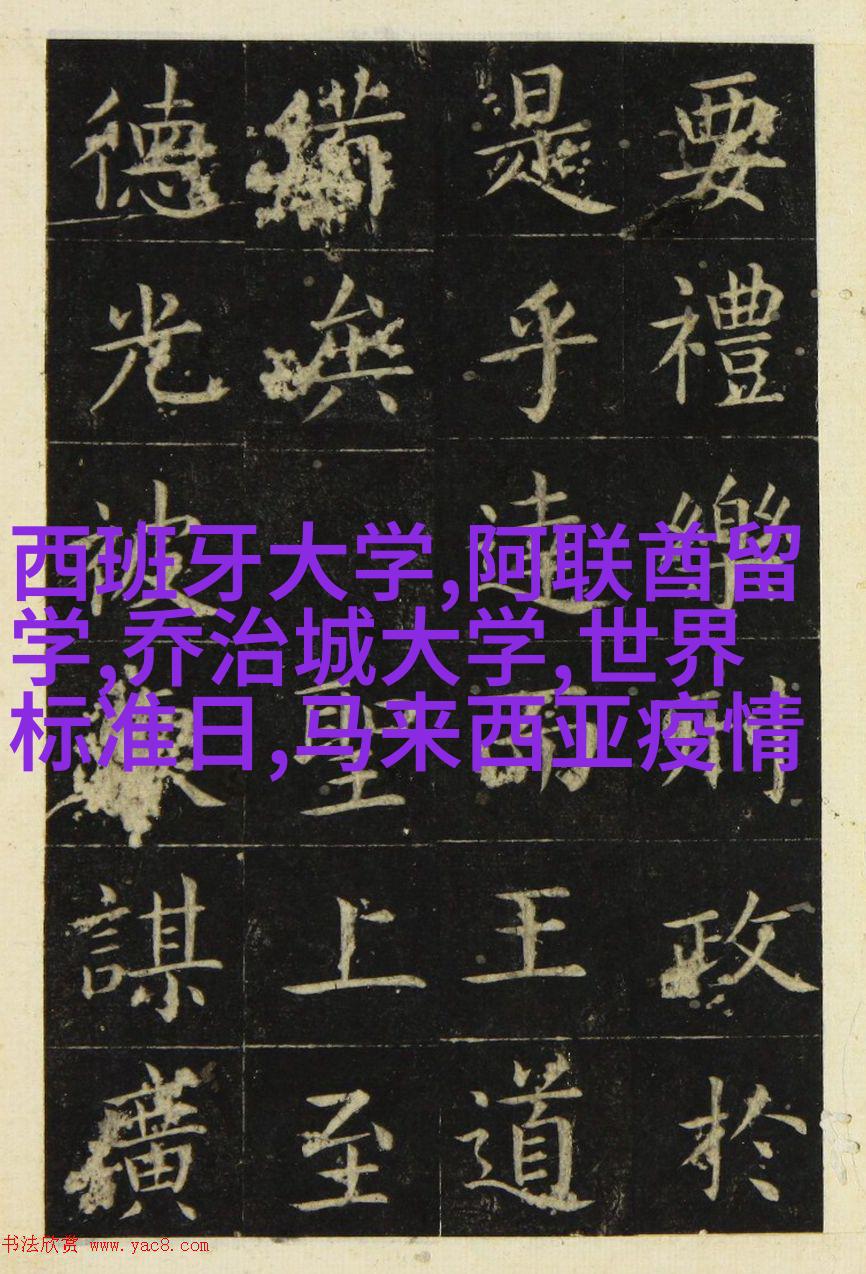 要禮樂刑政於
是乎達而王道
備
聖上至
德光被謀廣
西班牙大学,阿联酋留
学,乔治城大学,世界
标准日,马来西亚疫情
书法欣赏 www.yac8.com